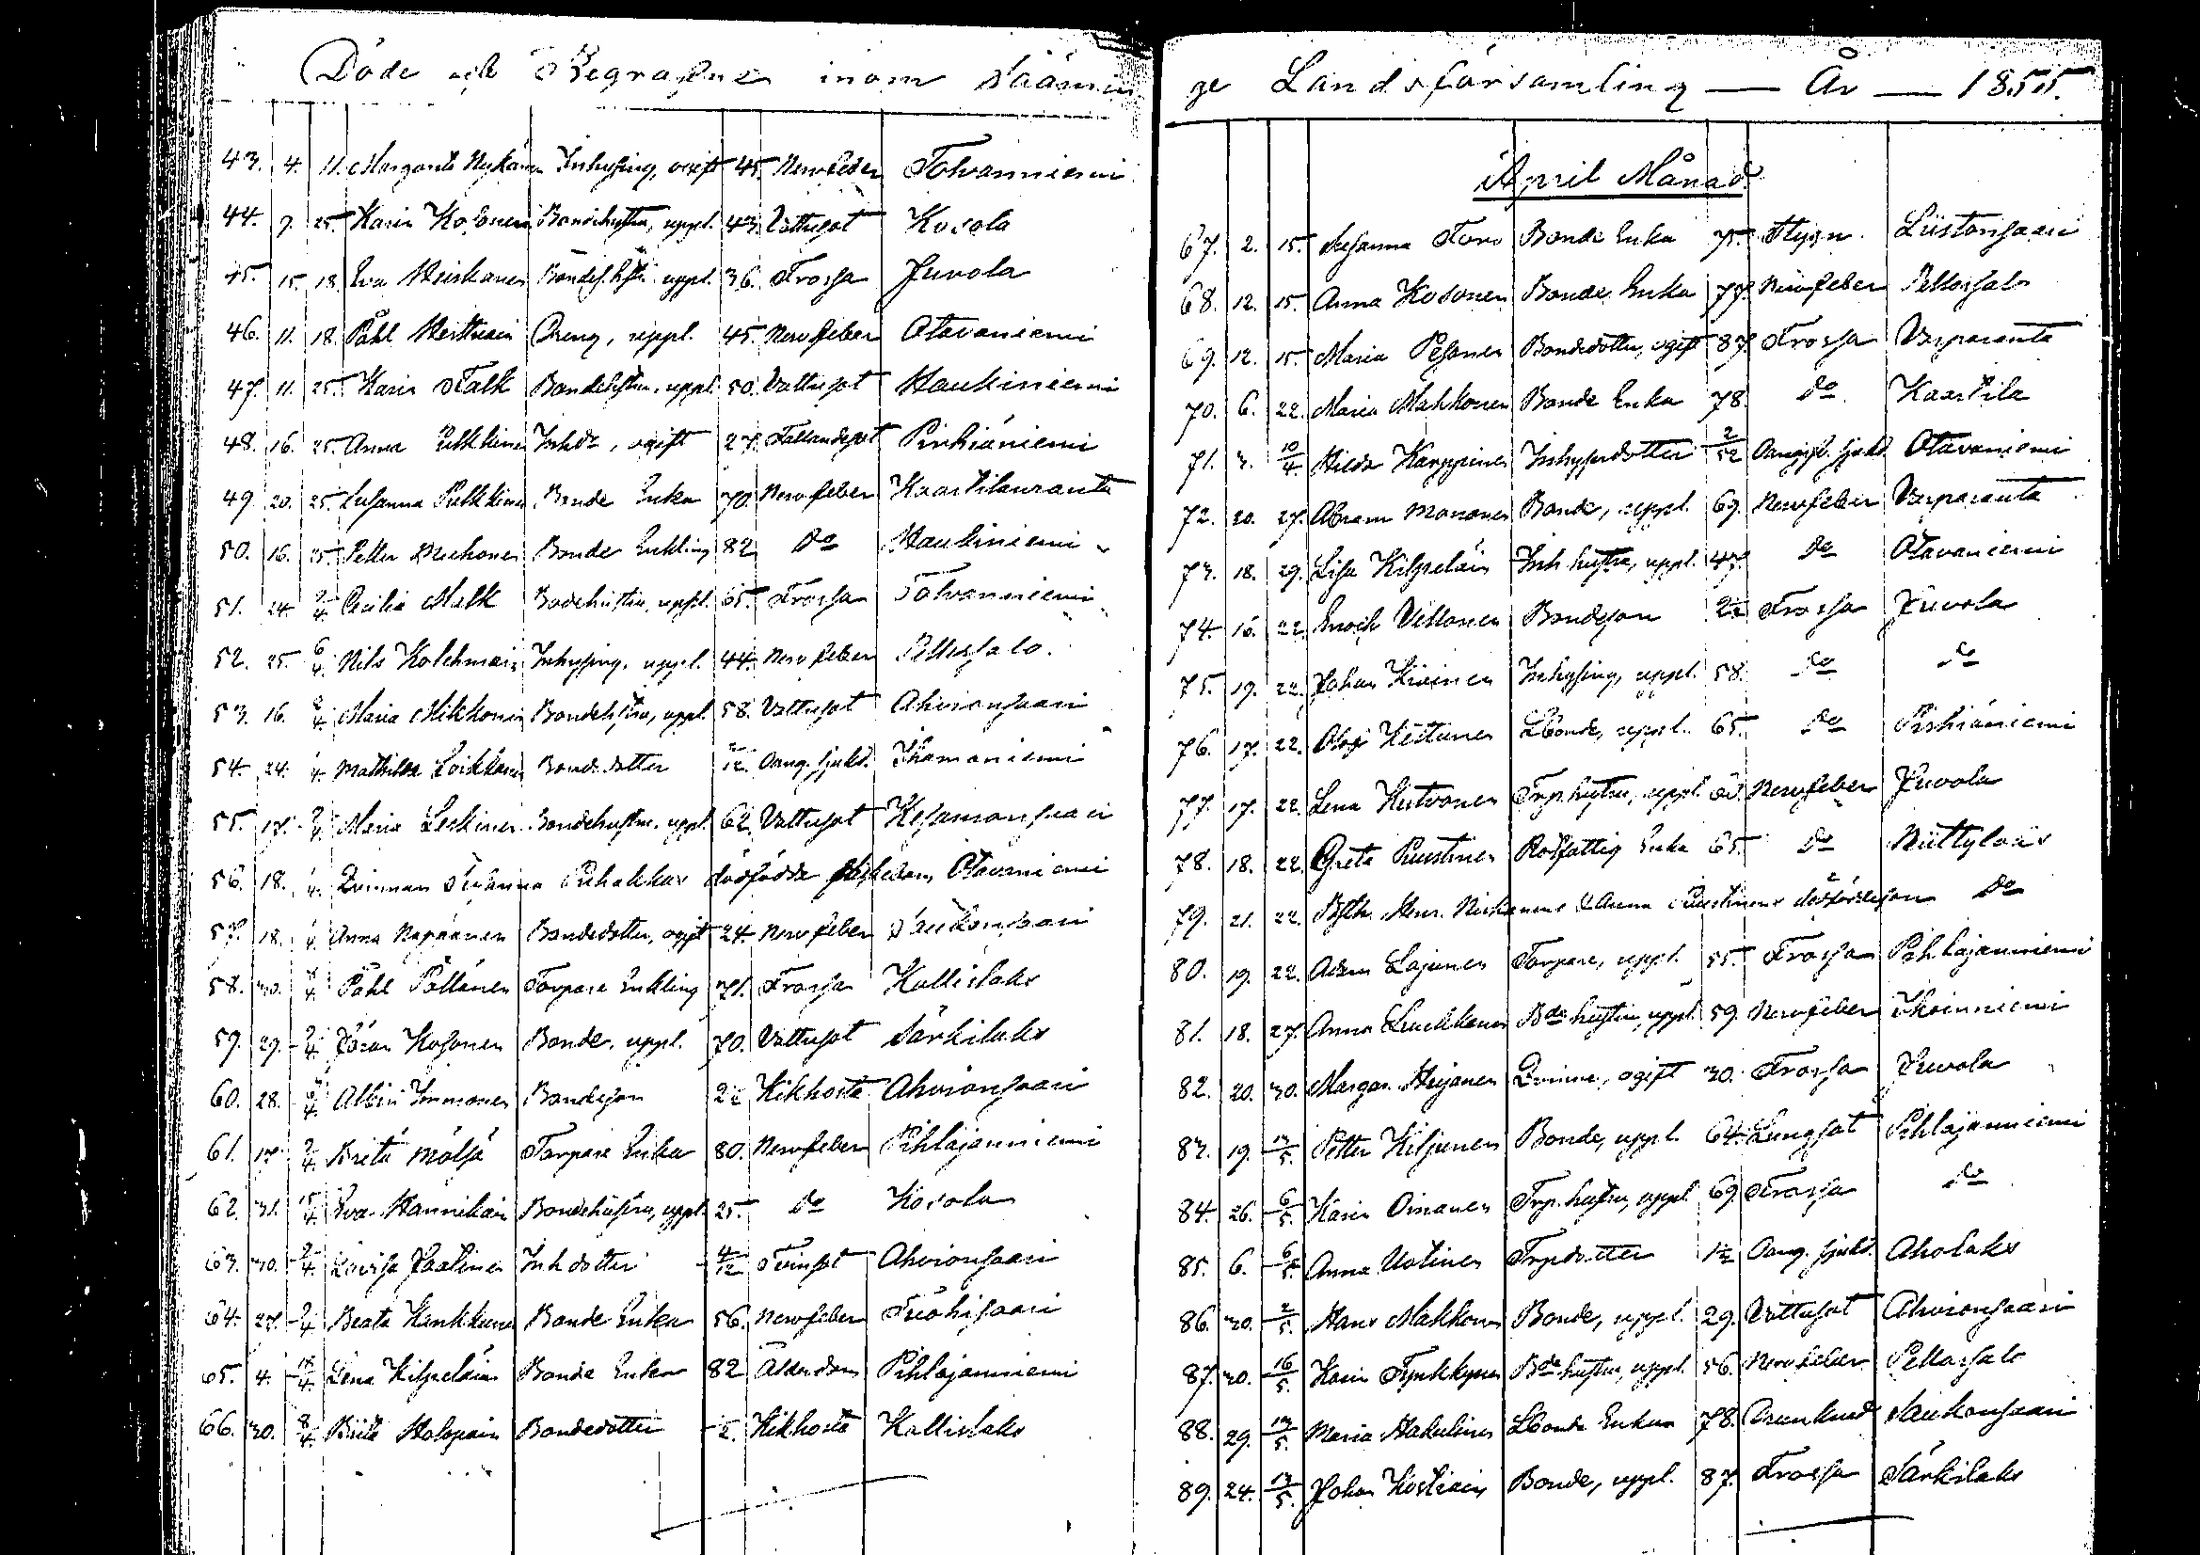 Döde och Begrafne inom Säämin
43. 4. 11. Margareta Nykänen Inhysing, ogift 45. Nervfeber Tolvanniemi
44. 7. 25. Karin Kosonen Bondehustru, uppl. 43. Vattusot Kosola
45. 15. 18. Eva Heiskanen Bondeh:stru uppl. 36. Frossa Juvola
46. 11. 18. Påhl Dreng, uppl. 45. Nervfeber Otavaniemi
47. 11. 25. Karin Falk Bondehustru, uppl. 50. Vattusot Haukiniemi
48. 16. 25. Anna Pulkkinen Inhds, ogift 27. Fallandesot Pirhiäniemi
49. 20. 25. Susanna Pulkkinen Bonde Enka 70. Nervfeber Kaartilanranta
50. 16. 25. Petter Bonde Enkling 82 do Haukiniemi
51. 24. 2/4 Cecilia Malk Bodehustru, uppl. 65. Frossa Tolvanniemi
52. 25. 6/4. Nils Kolehmain Inhysing, uppl. 44. Nervfeber Pellossalo.
53. 16. 2/4 Maria Mikkonen Bondeh:stru, uppl. 58. Vattusot Ahvionsaari
54. 24. Mathilda Loikkanen Bonde dotter 2/12. Oang. sjukd. Ihamaniemi
55. 17. 2/4 Maria Leskinen Bondehustru, uppl. 62. Vattusot Kesamonsaari
56. 18. Qvinnan Susanna Puhakkas dödfödda Otavaniemi
57. 18. Anna Napäänen Bondedotter, ogift 24. Nervfeber Saukonsaari
58. 30. Påhl Pöllänen Torpare Enkling 71. Frossa Kallislaks
59. 29. 2/4 Göran Kosonen Bonde, uppl. 70. Vattusot Särkilaks
60. 28. Albin Immonen Bondeson 2 Kikhosta Ahvionsaari
61. 17. 2/4. Brita Mölsä Torpare Enka 80. Nervfeber Pihlajanniemi
62. 31. 15/4 Eva Hannikain Bondehustru, uppl. 25. do Kosola
63. 30. 2/4. Lovisa Paatinen Inh dotter 4/12 Tvinsot Ahvionsaari
64. 27. 2/4 Beata Kankkunen Bonde Enka 56. Nervfeber
65. 4. Lena Kilpeläin Bonde Enka 82 Ålderdom Pihlajanniemi
66. 30. 8/4 Brita Holopain Bondedotter 2. Kikhosta Kallislaks
ge Landsförsamling — År — 1855.
April Månad
67. 2. 15. Susanna Toro Bonde Enka 75. Stygn. Liistonsaari
68. 12. 15. Anna Kosonen Bonde Enka 77. Nervfeber Pellossalo
69. 12. 15. Maria Pesonen Bondedotter, ogift 87. Frossa Varparanta
70. 6. 22. Maria Makkonen Bonde Enka 78. do. Kaartila
71. 3. 10/4 Hilda Karppinen Inhysesdotter 2/52 Oangif. sjukd Otavaniemi
72. 20. 27. Abram Mononen Bonde, uppl. 69. Nervfeber Varparanta
73. 18. 29. Lisa Kilpeläin Inh. hustru, uppl. 47. do Otavaniemi
74. 16. 22. Enoch Vellonen Bondeson 2 Frossa Juvola
75. 19. 22. Johan Kiainen Inhysing, uppl. 58. do do
76. 17. 22. Olof Kettunen LBonde, uppl. 65. do Pirhiäniemi
77. 17. 22. Lena Hutvonen Trp.hustru, uppl. Nervfeber Juvola
78. 18. 22. Greta Puustinen Rotfattig Enka 65. do Niittylaks
79. 21. 22. Hens. & Anna Puustinens dödfödde son do
80. 19. 22. Adam Lajunen Torpare, uppl. 55. Frossa Pihlajanniemi
81. 18. 27. Anna Luukkonen Bde hustru, uppl. 59. Nervfeber Ikoinniemi
82. 20. 30. Margar. Heijanen Qvinna, ogift 30. Frossa Juvola
83. 19. 13/5. Petter Kiljunen Bonde, uppl. 64. Lungsot Pihlajanniemi
84. 26. 6/5. Karin Oinanen Trp. hustru, uppl. 69. Frossa do
85. 6. 6/5. Anna Uotinen Trpdotter 1 Oang. sjukd. Aholaks
86. 30. 2/5. Hans Makkonen Bonde, uppl. 29. Vattusot Ahvionsaari
87. 30. 16/5. Karin Tynkkynen Bde hustru, uppl. 56. Nervfeber Pellossalo
88. 29. 13/5. Maria Hakulinen LBonde Enka 78. Saukonsaari
89. 24. 13/5. Johan Kostiain Bonde, uppl. 87. Frossa Särkilaks